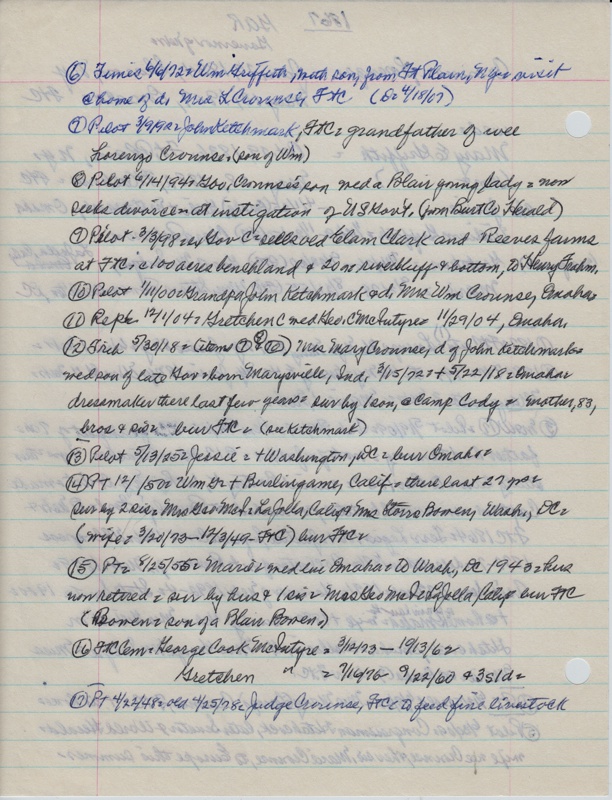 ⑥ Times 6/6/72 = Wm Griffith, with son, from Ft Plain, N.Y. = visit
@ home of d. Mrs L Crounse, FtC (D= 4/18/67)
⑦ Pilot 3/9/92 = John Ketchmark, FtC = grandfather of wee
Lorenzo Crounse, (son of Wm)
⑧ Pilot 6/14/94 = Gov. Crounse's son med a Blair young lady = now
seeks divorce = at instigation of US Gov't, (from Burt Co Herald)
⑨ Pilot 3/3/98 = ex Gov C = sells old Elam Clark and Reeves farms
at FtC = c 100 acres benchland & 20 ac river bluff & bottom, to Henry Frahm,
⑩ Pilot 1/11/00 = Grandpa John Ketchmark & d. Mrs Wm Crounse, Omaha
⑪ Repb 12/1/04 = Gretchen C med Geo. C McIntyre = 11/29/04, Omaha
⑫ Trib 5/30/18 = (items ⑦ & ⑩) Mrs Mary Crounse, d of John Ketchmark =
med son of late Gov = born Marysville, Ind, 3/15/72 = + 5/22/18 = Omaha
dressmaker there last few years = sur by 1 son, @ Camp Cody = mother, 83,
bros & sis = bur FtC = (see Ketchmark)
⑬ Pilot 5/13/25 = Jessie = + Washington, DC = bur Omaha =
⑭ PT 12/ /50 = Wm = + Burlingame, Calif = there last 27 yrs =
sur by 2 sis = Mrs Geo McI = La Jolla, Calif & Mrs Storrs Bowen, Wash., DC =
(wife = 3/20/73 - 12/3/49 - FtC) bur FtC =
⑮ PT = 8/25/55 = Marie = med liv Omaha = to Wash, DC 1943 = hus
now retired = sur by hus & 1 sis = Mrs Geo McI = La Jolla, Calif = bur FtC
(Bowen = son of a Blair Bowen)
⑯ FtC Cem = George Cook McIntyre = 3/12/73 - 1913/62
Gretchen " = 7/19/76 9/22/60 & 3 s 1 d =
⑰ PT 4/22/48 = old 4/25/78 = Judge Crounse, FtC = to feed fine livestock